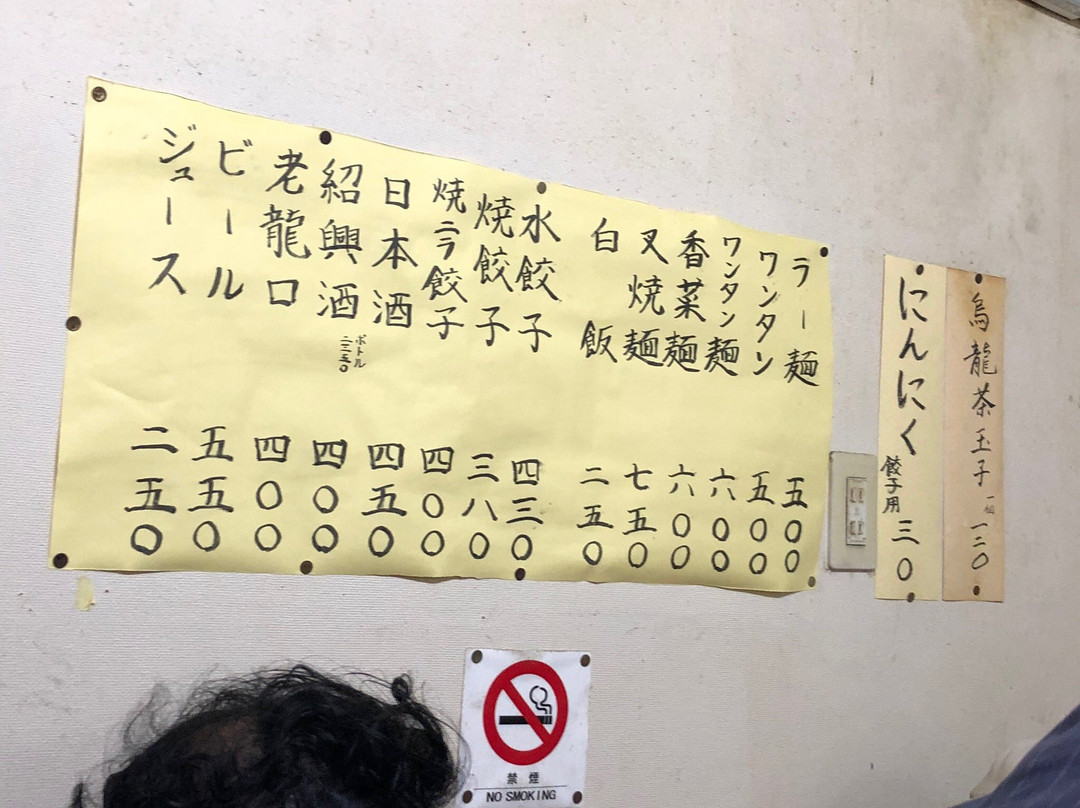 烏龍茶玉子 一個 一二〇
にんにく 餃子用 三〇
ラー麺 五〇〇
ワンタン 五〇〇
ワンタン麺 六〇〇
香菜麺 六〇〇
叉焼麺 七五〇
白飯 二五〇
水餃子 四三〇
焼餃子 三八〇
焼ニラ餃子 四〇〇
日本酒 四五〇
紹興酒 ボトル 二二五〇 四〇〇
老龍口 四〇〇
ビール 五五〇
ジュース 二五〇
禁煙
NO SMOKING